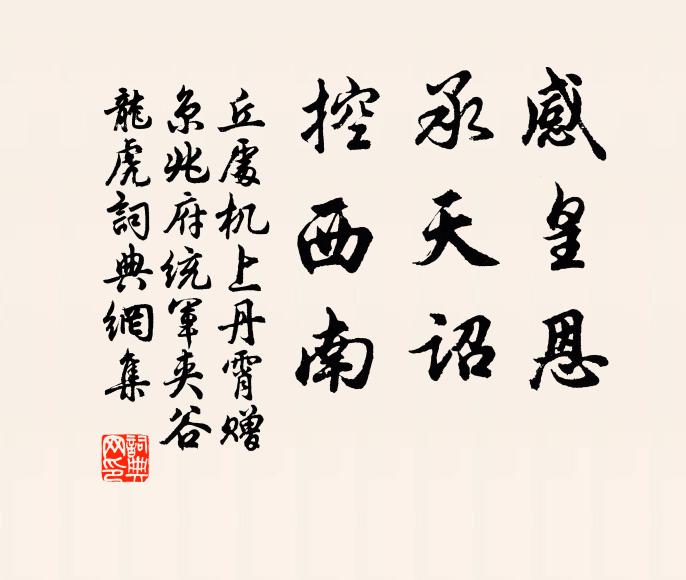 感皇恩
承天诏
控西南
丘處机上丹霄赠
京兆府统军夹谷
龍虎詞典網集
詞典
网印